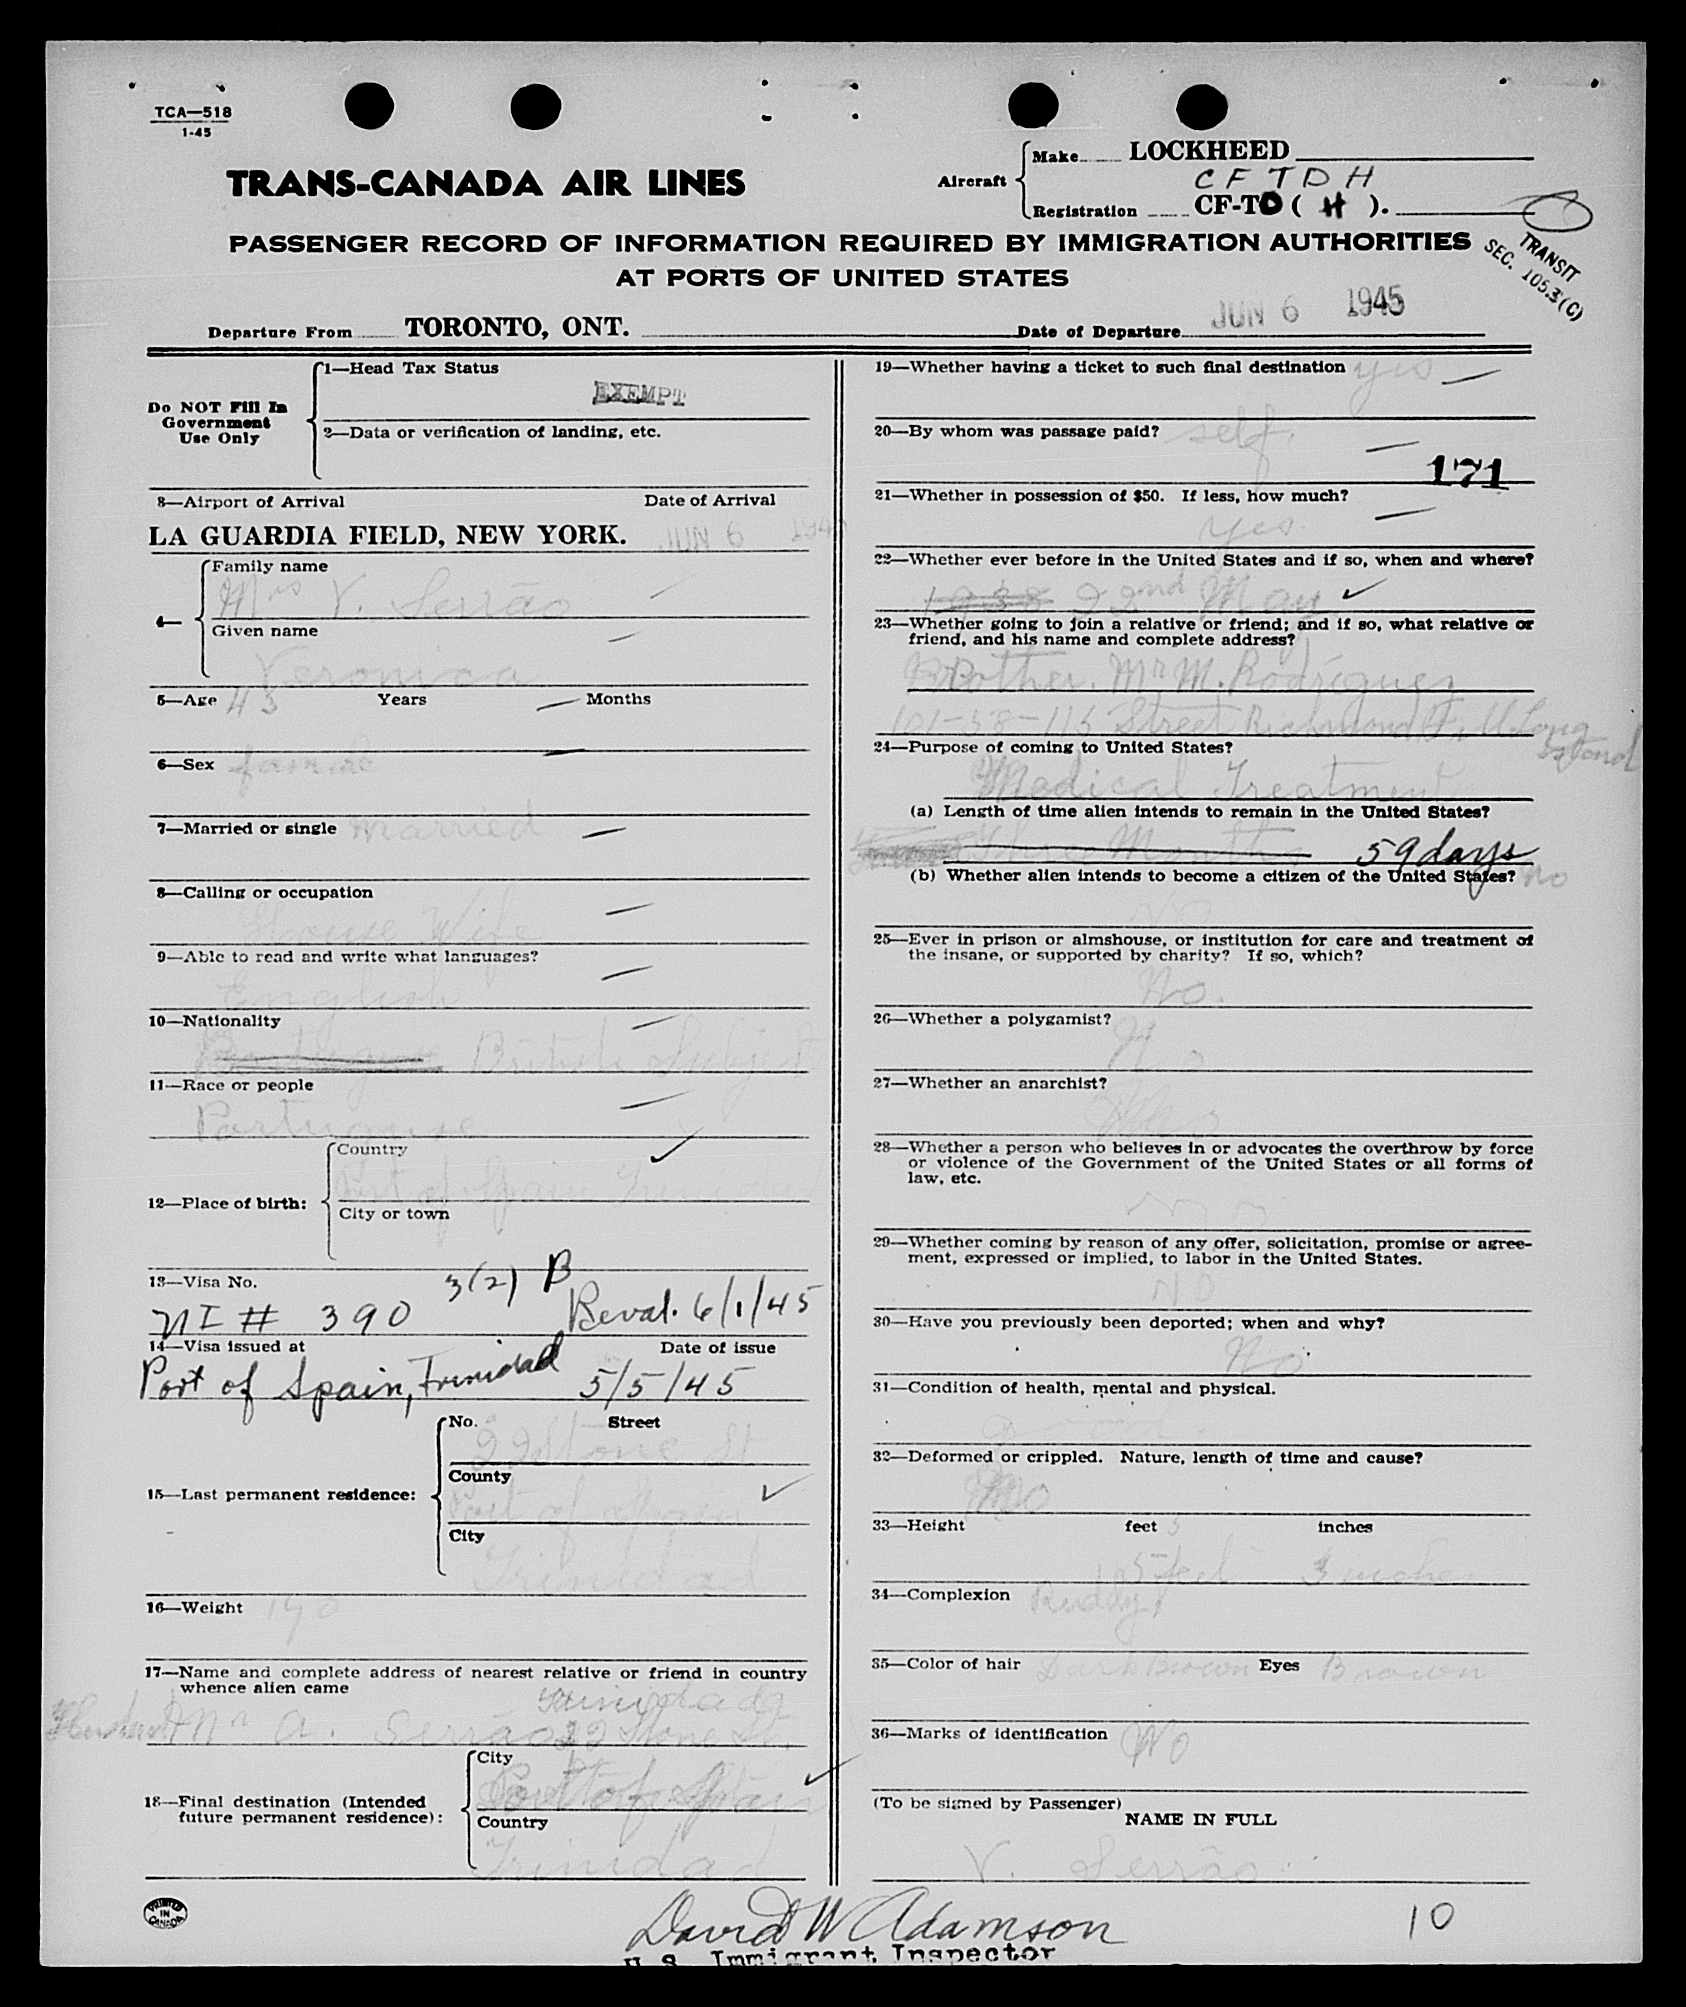 TCA—518
1-45
TRANS-CANADA AIR LINES
Aircraft
Make LOCKHEED
C F T D H
Registration CF-TD ( H ).
PASSENGER RECORD OF INFORMATION REQUIRED BY IMMIGRATION AUTHORITIES
AT PORTS OF UNITED STATES
TRANSIT
SEC. 105.3(C)
Departure From TORONTO, ONT. Date of Departure JUN 6 1945
Do NOT Fill In
Government
Use Only
1—Head Tax Status
EXEMPT
2—Data or verification of landing, etc.
3—Airport of Arrival Date of Arrival
LA GUARDIA FIELD, NEW YORK. JUN 6
4— Family name
Mrs V. Serrão
Given name
Veronica
5—Age 43 Years Months
6—Sex female
7—Married or single married
8—Calling or occupation
House Wife
9—Able to read and write what languages?
English
10—Nationality
British Subject
11—Race or people
Portuguese
12—Place of birth:
Country
Port of Spain Trinidad
City or town
13—Visa No. 3(2) B
NI # 390 Reval. 6/1/45
14—Visa issued at Date of issue
Port of Spain, Trinidad 5/5/45
15—Last permanent residence:
No. Street
22 Stone St
County
Port of Spain
City
Trinidad
16—Weight 190
17—Name and complete address of nearest relative or friend in country
whence alien came
Trinidad
Husband Mr A. Serrão 22 Stone St.
18—Final destination (Intended
future permanent residence):
City
Port of Spain
Country
Trinidad
PRINTED IN CANADA
19—Whether having a ticket to such final destination yes
20—By whom was passage paid? self.
171
21—Whether in possession of $50. If less, how much?
yes.
22—Whether ever before in the United States and if so, when and where?
1938 22nd May
23—Whether going to join a relative or friend; and if so, what relative or
friend, and his name and complete address?
Brother. Mr M. Rodriguez
101-58-115 Street Richmond Hill Long
Island
24—Purpose of coming to United States?
Medical Treatment
(a) Length of time alien intends to remain in the United States?
Three Months 59 days
(b) Whether alien intends to become a citizen of the United States? No
No
25—Ever in prison or almshouse, or institution for care and treatment of
the insane, or supported by charity? If so, which?
No.
26—Whether a polygamist?
No
27—Whether an anarchist?
No
28—Whether a person who believes in or advocates the overthrow by force
or violence of the Government of the United States or all forms of
law, etc.
No
29—Whether coming by reason of any offer, solicitation, promise or agree-
ment, expressed or implied, to labor in the United States.
NO
30—Have you previously been deported; when and why?
No
31—Condition of health, mental and physical.
Good
32—Deformed or crippled. Nature, length of time and cause?
No
33—Height feet 5 inches
5 feet 3 inches
34—Complexion Ruddy
35—Color of hair Dark Brown Eyes Brown
36—Marks of identification No
(To be signed by Passenger)
NAME IN FULL
V. Serrão
David W Adamson
U.S. Immigrant Inspector
10